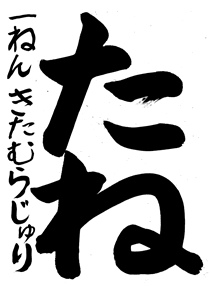 たね
一ねん きたむらじゅり